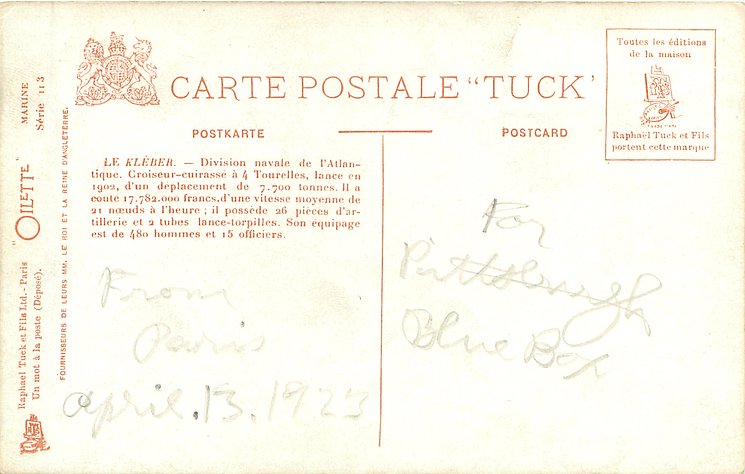 CARTE POSTALE "TUCK"
POSTKARTE
POSTCARD
Toutes les éditions
de la maison
Raphaël Tuck et Fils
portent cette marque
LE KLÉBER. — Division navale de l'Atlan-
tique. Croiseur-cuirassé à 4 Tourelles, lancé en
1902, d'un déplacement de 7.700 tonnes. Il a
couté 17.782.000 francs, d'une vitesse moyenne de
21 nœuds à l'heure; il possède 26 pièces d'ar-
tillerie et 2 tubes lance-torpilles. Son équipage
est de 480 hommes et 15 officiers.
From
Paris
April.13.1923
For
Pittsburgh
Blue Box
MARINE
Série 113
"OILETTE"
Raphael Tuck et Fils Ltd. - Paris
Un mot à la poste (Déposé).
FOURNISSEURS DE LEURS MM. LE ROI ET LA REINE D'ANGLETERRE.